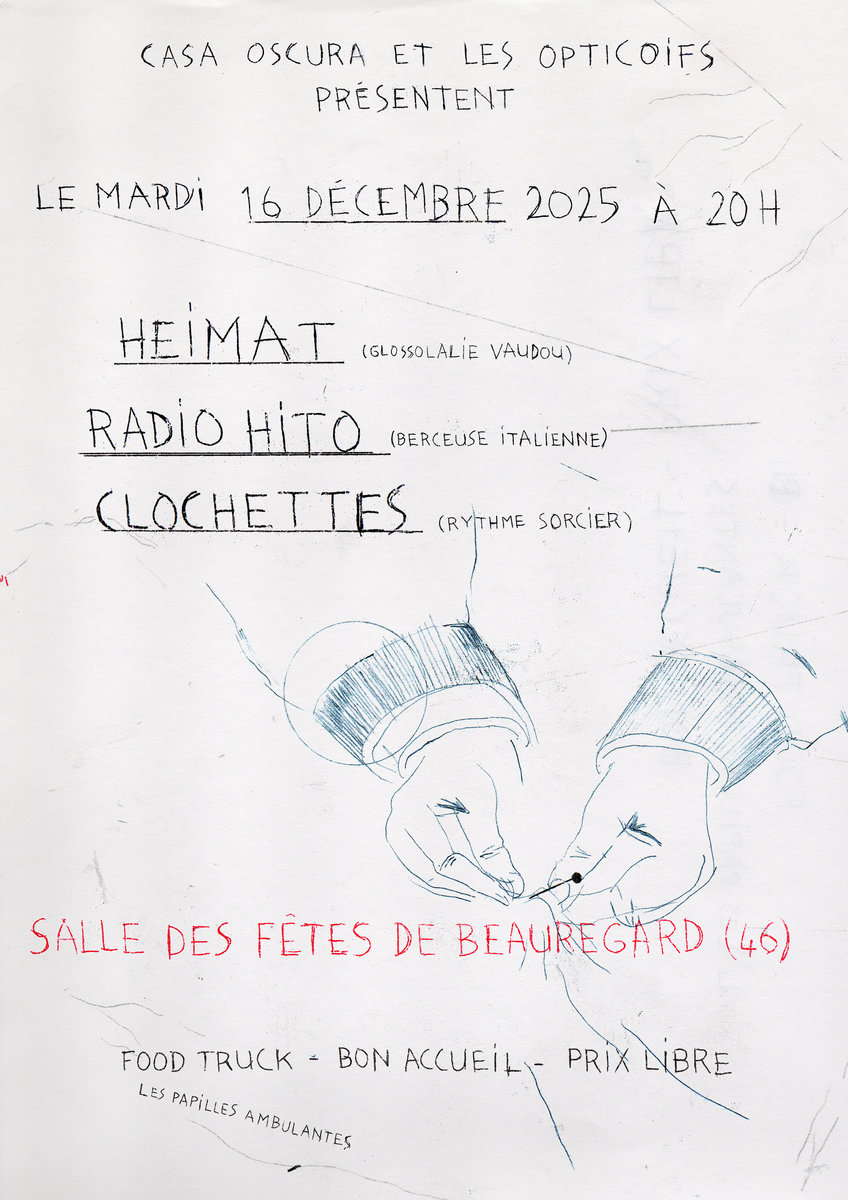 CASA OSCURA ET LES OPTICOIFS
PRÉSENTENT
LE MARDI 16 DÉCEMBRE 2025 À 20H
HEIMAT (GLOSSOLALIE VAUDOU)
RADIO HITO (BERCEUSE ITALIENNE)
CLOCHETTES (RYTHME SORCIER)
SALLE DES FÊTES DE BEAUREGARD (46)
FOOD TRUCK - BON ACCUEIL - PRIX LIBRE
LES PAPILLES AMBULANTES